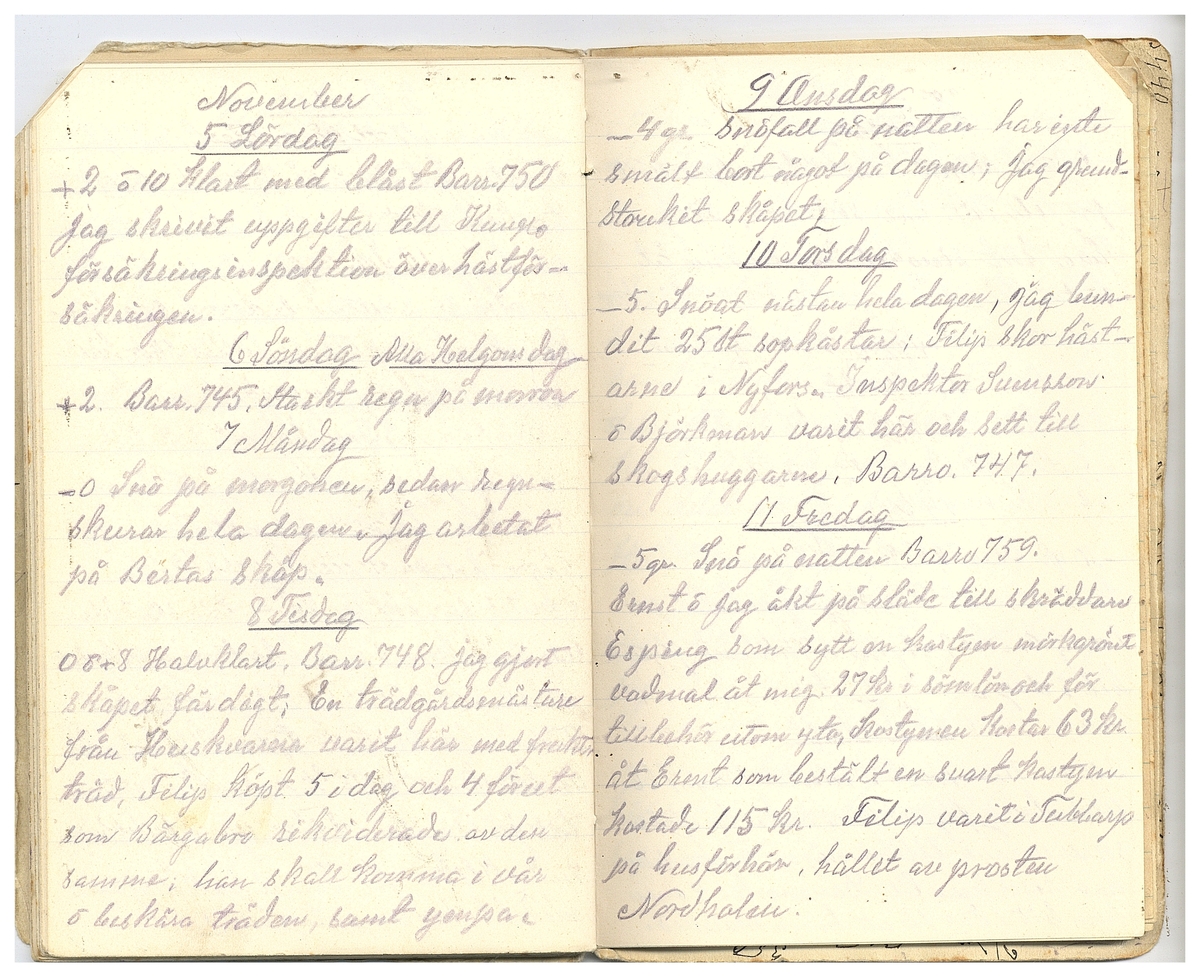 November
5 Lördag
+2 o 10 Klart med blåst Barr. 750
Jag skrivit uppgifter till Kungo
försäkringsinspektion över hästför-
säkringen.
6 Söndag Alla Helgons dag
+2. Barr. 745, Starkt regn på morron
7 Måndag
-0 Snö på morgonen, sedan regn-
skurar hela dagen. Jag arbetat
på Bertas skåp.
8 Tisdag
0 o +8 Halvklart. Barr. 748. jag gjort
skåpet färdigt; En trädgårdsmästare
från Huskvarna varit här med frukt
träd, Filip köpt 5 i dag och 4 förut
som Bärgabro rekviderade av den
samme; han skall komma i vår
o beskära träden, samt
9 Onsdag
-4 gr snöfall på natten har inte
smält bort något på dagen; Jag grund-
strukit skåpet;
10 Torsdag
-5. Snögt nästan hela dagen, jag bun-
dit 25 st sopkåstar; Filip skor häst-
arne i Nyfors. Inspektor Svensson
o Björkman varit här och sett till
skogshuggarne. Barro. 747.
11 Fredag
-5 gr. Snö på natten Barro 759.
Ernst o jag åkt på släde till skräddare
Esping som sytt en kostym mörkgrönt
vadmal åt mig. 27 kr i sömlön och för
tillbehör utom yta, kostymen kostar 63 kr.
åt Ernst som bestält en svart kostym
kostade 115 kr. Filip varit i Tubbarp
på husförhör, hållet av prosten
Nordholm.